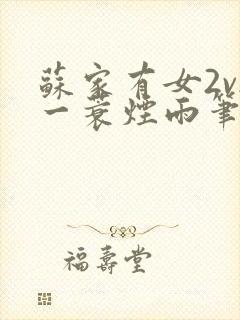 蘇家有女2v
一蓑煙雨筆
福壽堂